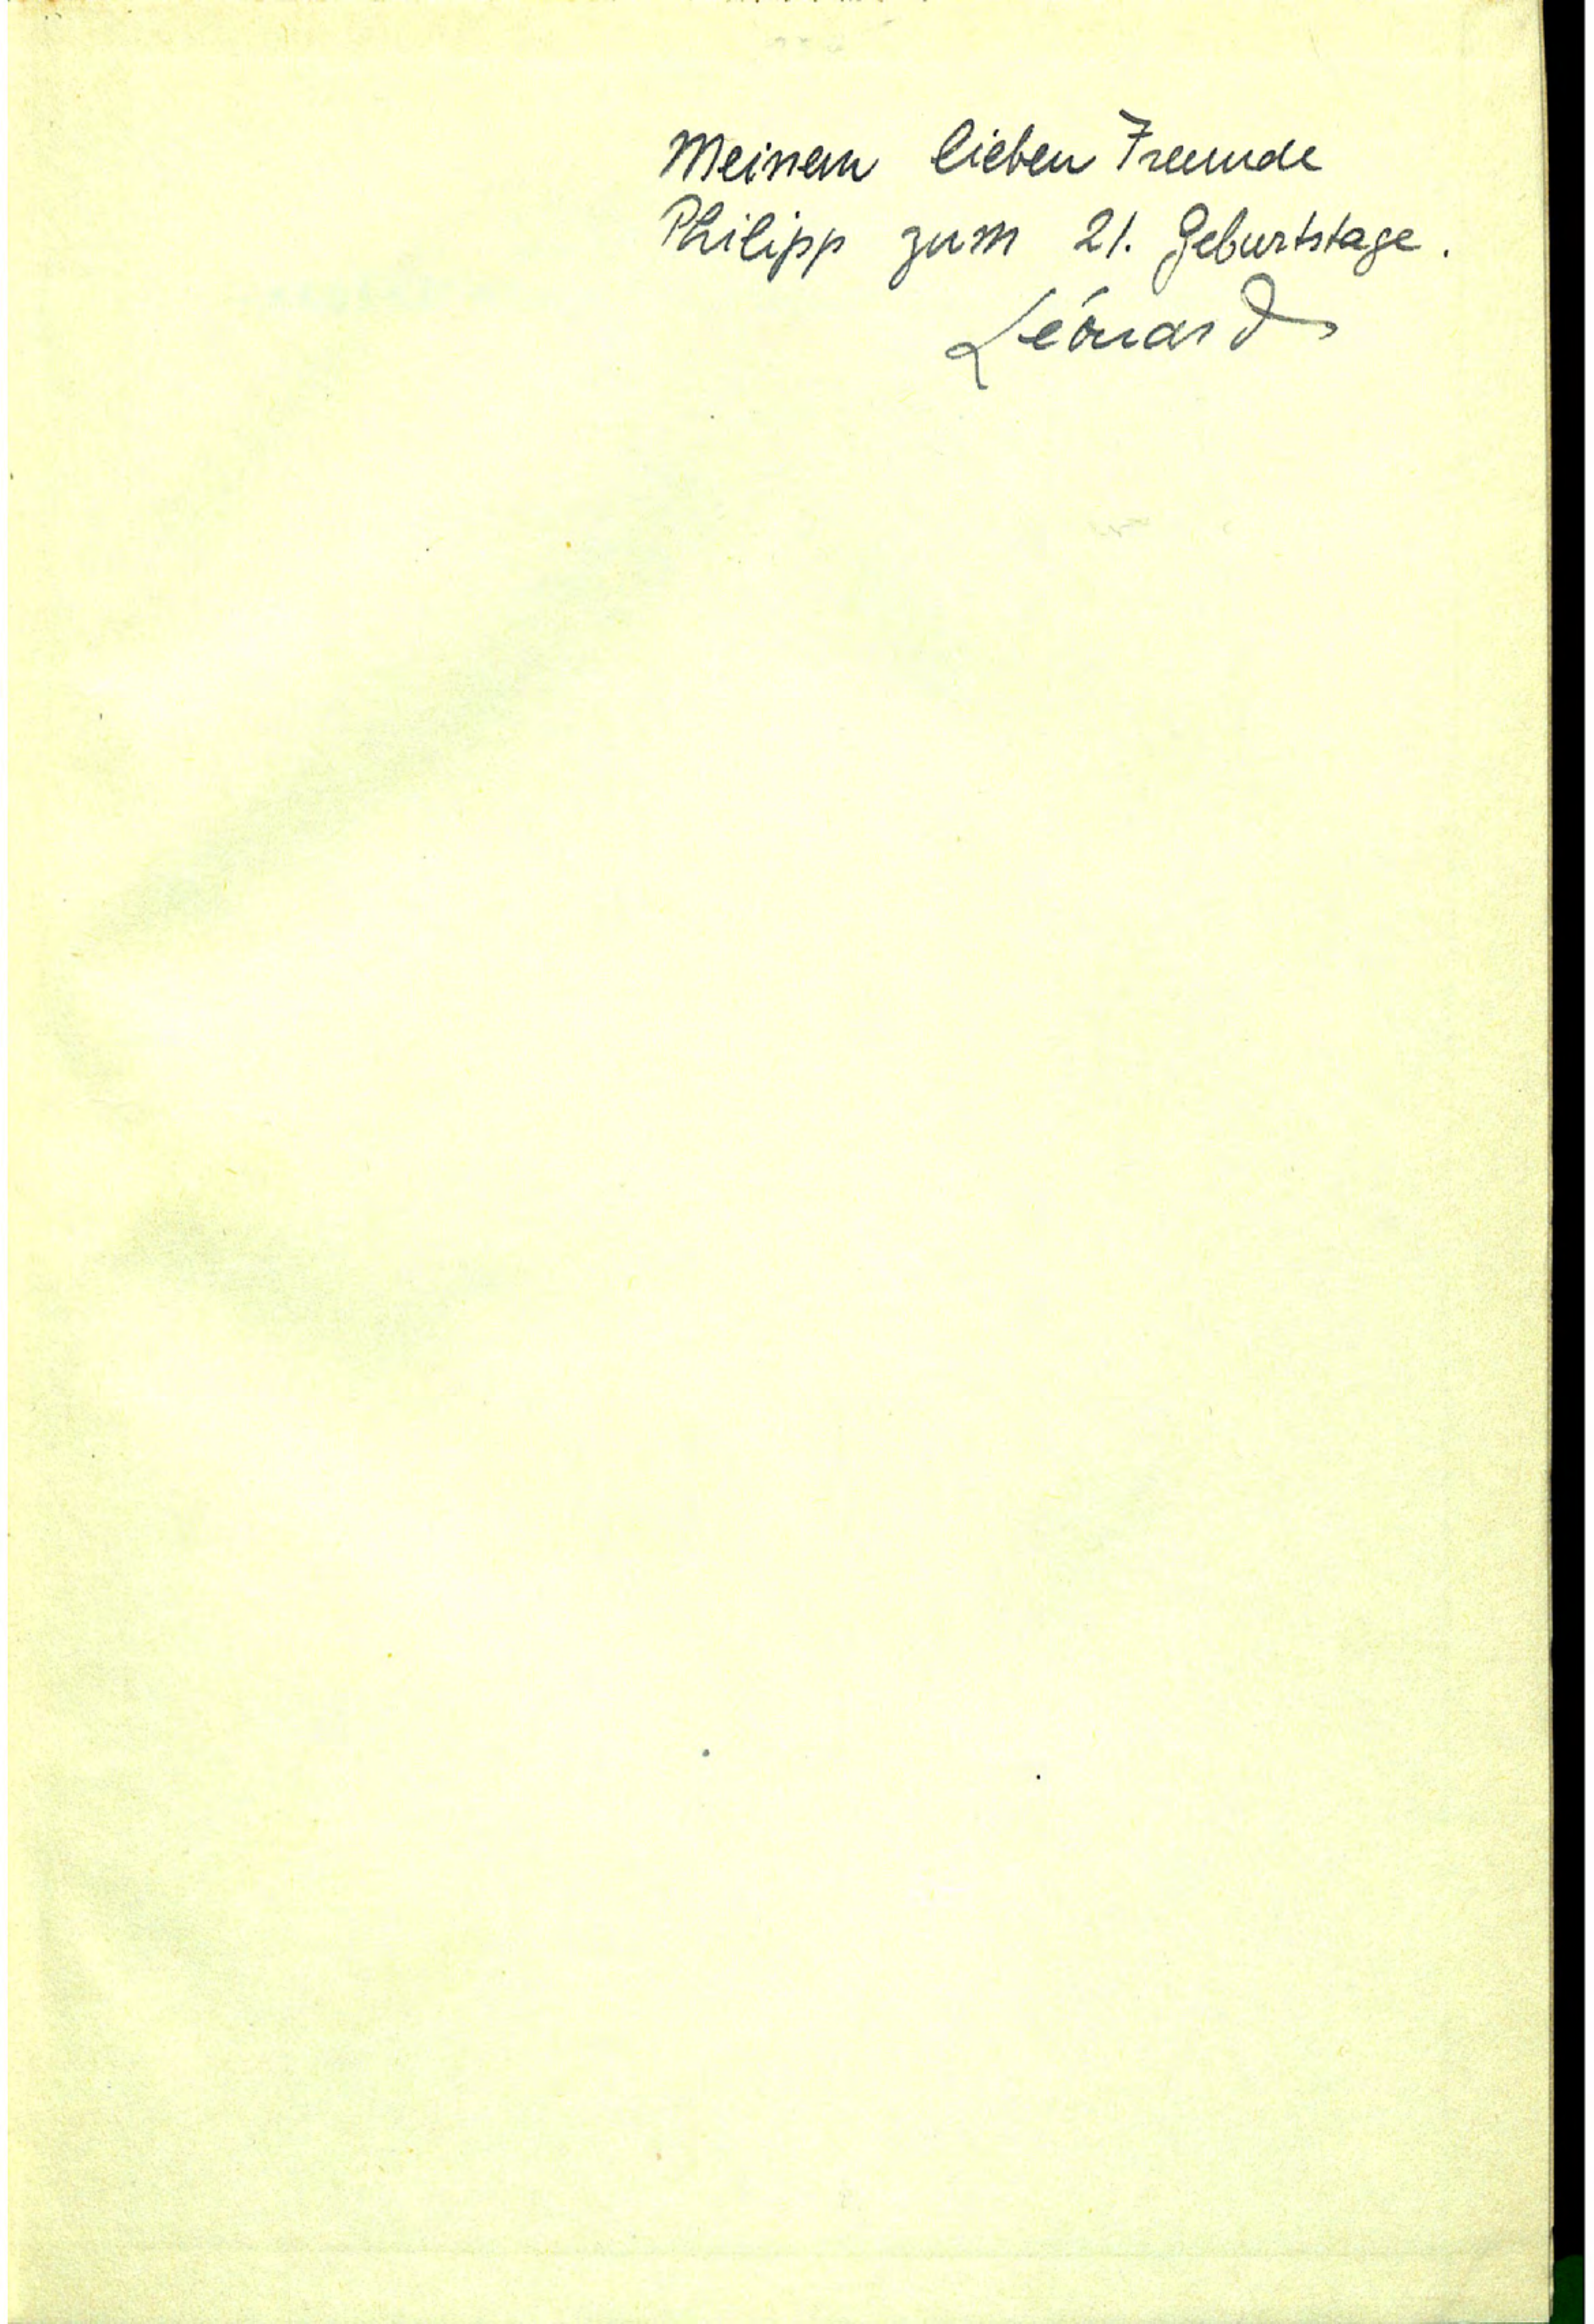 Meinem lieben Freunde
Philipp zum 21. Geburtstage.
Léonard